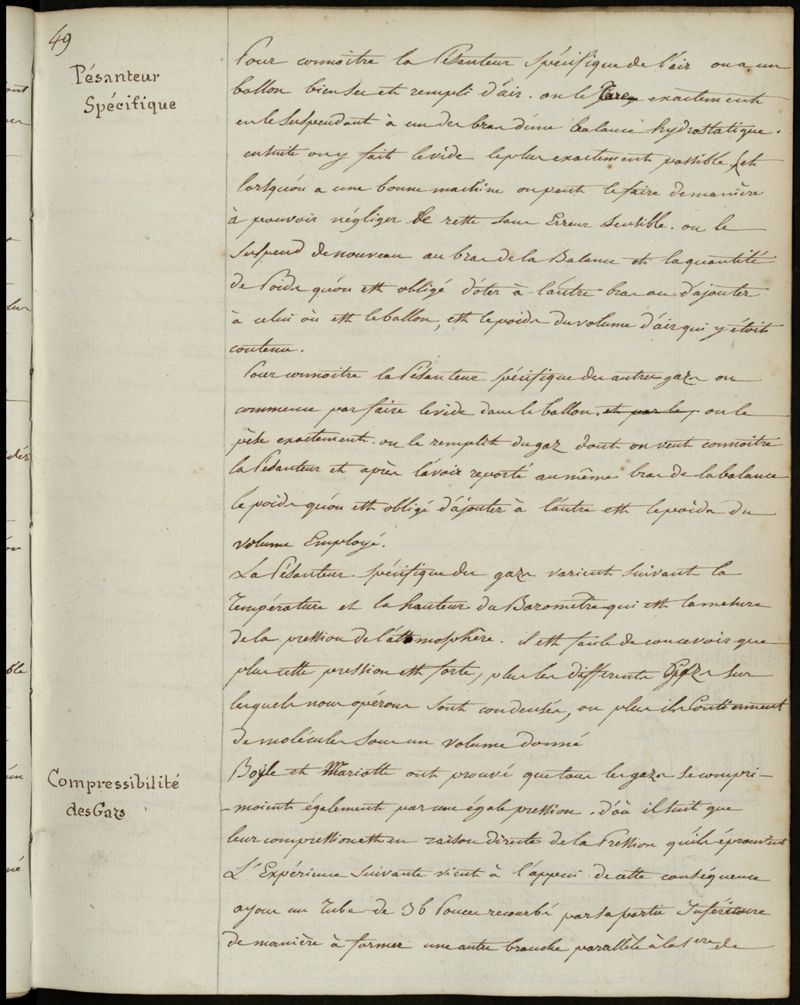 49
Pésanteur
Spécifique
Pour connoitre la Pésanteur spécifique de l'air on a un
ballon bien sec et rempli d'air. on le Tare exactement
en le suspendant à un des bras d'une balance hydrostatique.
ensuite on y fait le vide le plus exactement possible, (et
lorsqu'on a une bonne machine on peut le faire de manière
à pouvoir négliger le reste sans Erreur sensible. on le
suspend de nouveau au bras de la Balance et la quantité
de Poids qu'on est obligé d'oter à l'autre bras ou d'ajouter
à celui où est le ballon, est le poids du volume d'air qui y étoit
contenu.
Pour connoitre la Pésanteur spécifique des autres gazs on
commence par faire le vide dans le ballon, et par le, on le
pèse exactement. on le remplit du gaz dont on veut connoitre
la Pésanteur et après l'avoir reporté au même bras de la balance
le poids qu'on est obligé d'ajouter à l'autre est le poids du
volume Employé.
La Pésanteur spécifique des gazs varient suivant la
Température et la hauteur du Barometre qui est la mesure
de la pression de l'atmosphère. il est facile de concevoir que
plus cette pression est forte, plus les differents Gazs sur
lesquels nous opérons sont condensés, ou plus ils contiennent
de molécules sous un volume donné
Compressibilité
des Gazs
Boyle et Mariotte ont prouvé que tous les gazs se compri-
-moient également par une égale pression. d'où il suit que
leur compression est en raison directe de la Pression qu'ils éprouvent
L'Expérience suivante vient à l'appui de cette conséquence
ayons un Tube de 36 Pouces recourbé par sa partie Inférieure
de manière à former une autre branche parallèle à la 1ere de